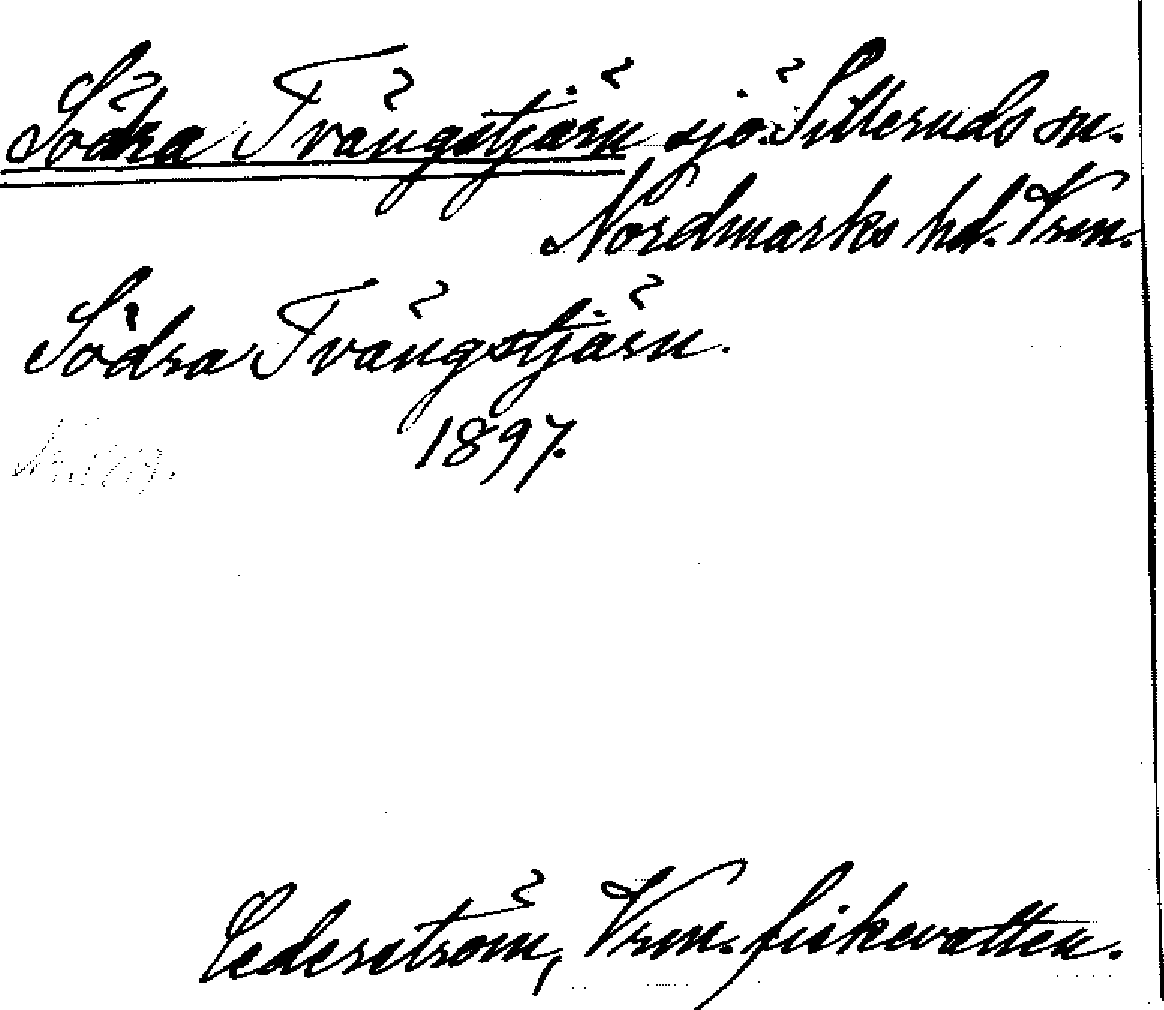 Södra Tvängstjärn sjö. Silleruds sn.
Nordmarks hd. Vrm.
Södra Tvängstjärn.
1897.
Cederström, Vrm. fiskevatten.